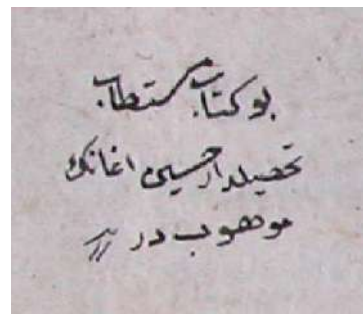 بو كتاب مستطاب
تحصیلدار حسین اغانك
موهوب در